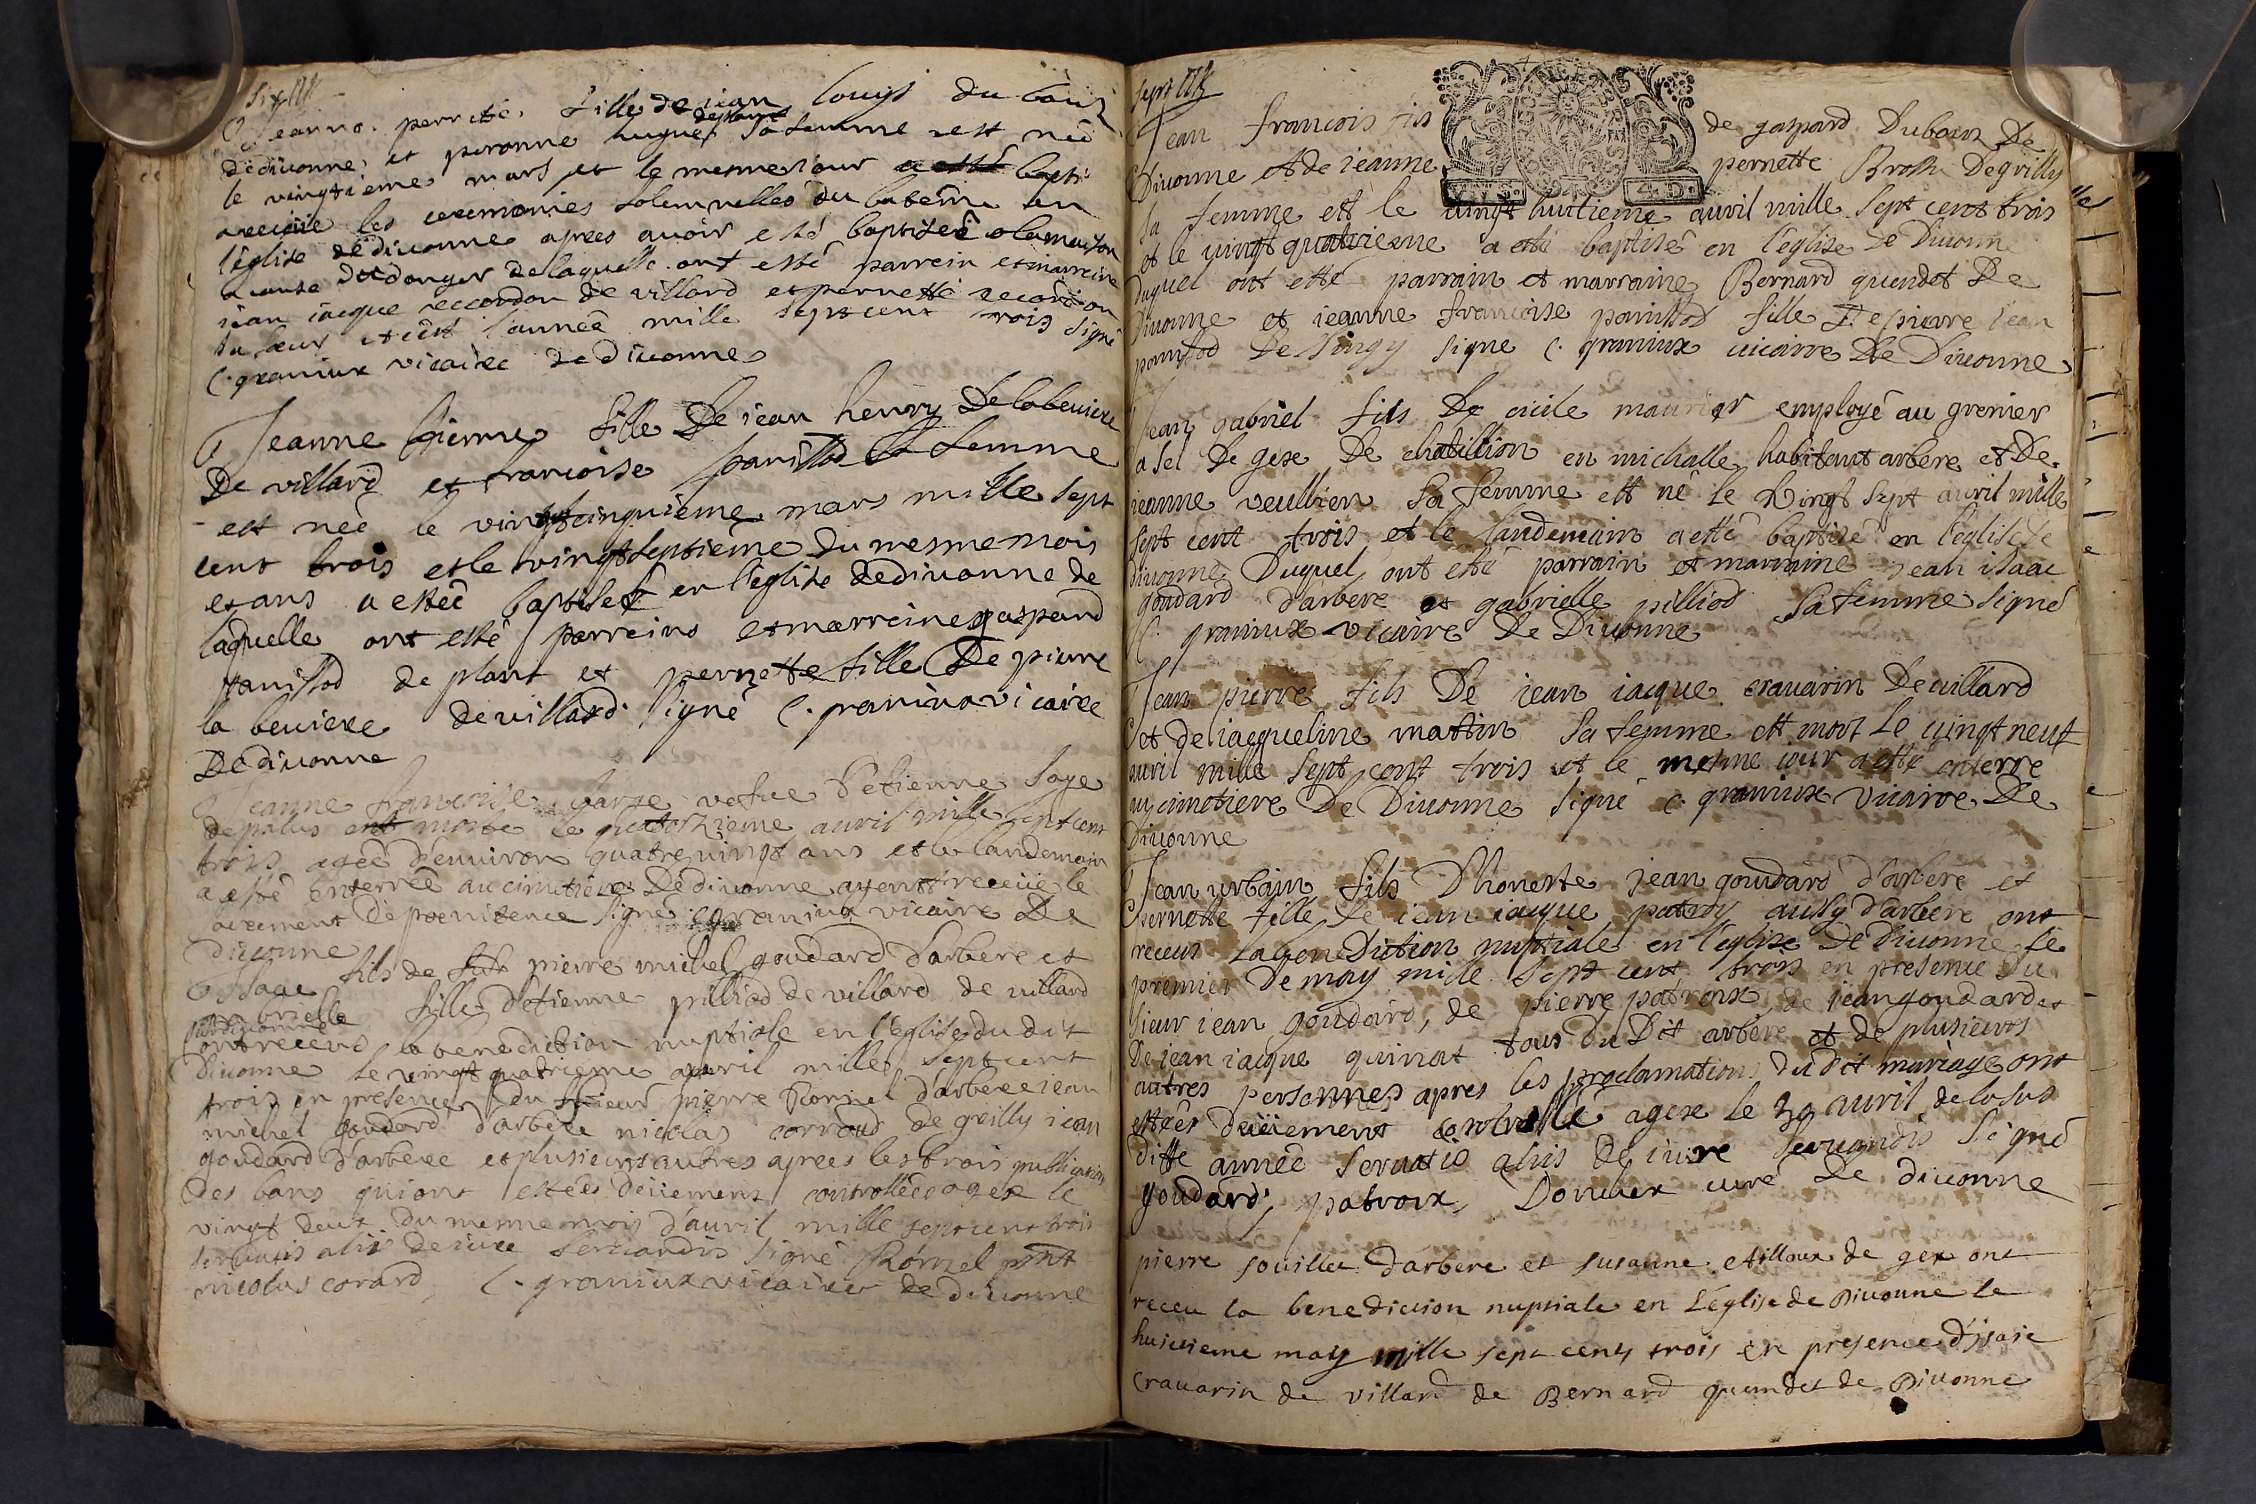 Jeanne perrete fille de jean louys du bour
dedivonne et peronne hugues sa femme est née
le vingtieme mars et le mesme jour a esté bapti
receüe les ceremonies solemnelles du bateme en
l'eglise de divonne apres avoir esté baptiseé a la maison
a cause du danger de laquelle ont esté parrein et marreine
jean iacque recordon de villard et pernette recordon
sa sœur et cest l'anneé mille sept cent trois signé
C. graniux vicaire de divonne
Jeanne pierre fille De iean henry De labeviere
De villard et francoise panissod sa femme
est neé le vingtcinquieme mars mille sept
cent trois et le vingtseptieme du mesme mois
et ans a esteé baptiseé en l'eglise dedivonne de
laquelle ont esté parreins et marreine gaspard
panissod de plant et pernette fille De pierre
la beviere de villard signé C. graniux vicaire
De divonne
Jeanne francoise vefue d'etienne
de est morte le quatorzieme avril mille sept cent
trois ageé d'environ quatrevingt ans et le landemain
a esté enterreé au cimetiere De divonne ayent receüe le
sacrement de poenitence signé C. graniux vicaire De
divonne
Isaac fils de feu pierre michel goudard d'arbere et
gabrielle fille d'etienne pilliod de villard de villard
sur divonne
ont receus la benediction nuptiale en l'eglise du dit
Divonne le vingt quatrieme avril mille sept cent
trois en presence du sieur pierre d'arbere jean
michel goudard d'arbere nicolas corraud de grilly iean
goudard d'arbere et plusieurs autres apres les trois publication
Des bans qui ont esteés deüement controlleés a gex le
vingt deux du mesme mois d'avril mille sept cent trois
servatis aliis de iure servandis signé
nicolas corard, C. graniux vicaire de divonne
sept
Jean francois fils de gaspard Dubour De
Divonne et de ieanne pernette Degrilly
sa femme est le vingt huitieme avril mille sept cent trois
et le vingt quatrieme a esté baptisé en l'eglise de Divonne
duquel ont esté parrain et marraine Bernard quendet De
Divonne et ieanne francoise panissod fille De pierre iean
panissod De signe C. graniux vicaire De Divonne
Jean gabriel fils De employé au grenier
a sel De gex De chatillion en michalle habitant arbere et De
ieanne veullien sa femme est né le vingt sept avril mille
sept cent trois et le landemain a esté baptisé en l'eglise de
divonne Duquel ont esté parrain et marraine jean isaac
goudard d'arbere et gabrielle pilliod sa femme signé
C. graniux vicaire De Divonne
Jean pierre fils De iean iacque cravarin De villard
et de iacqueline martin sa femme est mort le vingt neuf
avril mille sept cent trois et le mesme iour a esté enterré
au cimetiere De Divonne signé C. graniux vicaire De
Divonne
Jean urbain fils D'honeste jean goudard d'arbere et
pernette fille de iean iacque patroy aussy d'arbere ont
receus la beneDiction nuptiale en l'eglise De divonne le
premier De may mile sept cent trois en presence du
sieur iean goudard, de pierre patroix, de jean goudard et
De iean iacque quinat tous du Dit arbere et de plusieurs
autres personnes apres les proclamations du dit mariage ont
esteés deüement controllé a gex le 30 avril de la sus
ditte anneé servatis aliis De iure servandis signé
goudard, patroix, Doncieux curé De divonne
pierre souillet d'arbere et susanne de gex ont
receu la benediction nuptiale en l'église de Divonne le
huictieme may mille sept cents trois en presence d'isaie
Cravarin de villard de Bernard quendet de Divonne